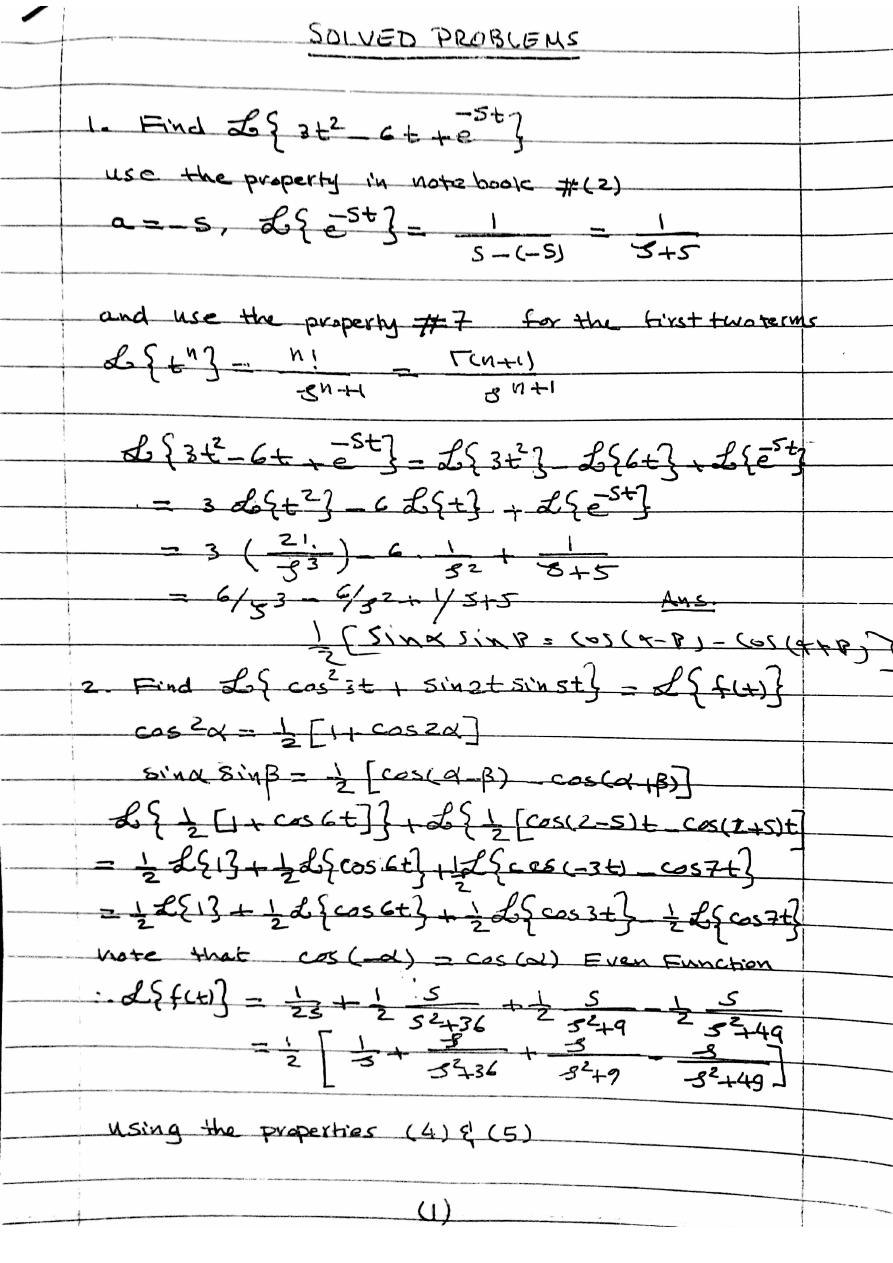 SOLVED PROBLEMS
1. Find ℒ{ 3t² - 6t + e^-5t }
use the property in note book #(2)
a = -5, ℒ{ e^-5t } = 1/(s-(-5)) = 1/(s+5)
and use the property #7 for the first two terms
ℒ{t^n} = n!/s^(n+1) = Γ(n+1)/s^(n+1)
ℒ{3t² - 6t + e^-5t} = ℒ{3t²} - ℒ{6t} + ℒ{e^-5t}
= 3 ℒ{t²} - 6 ℒ{t} + ℒ{e^-5t}
= 3 (2!/s³) - 6 · 1/s² + 1/(s+5)
= 6/s³ - 6/s² + 1/s+5 Ans.
1/2 [ sinα sinβ = cos(α-β) - cos(α+β) ]
2. Find ℒ{ cos² 3t + sin2t sin5t } = ℒ{ f(t) }
cos²α = 1/2 [1 + cos2α]
sinα sinβ = 1/2 [cos(α-β) - cos(α+β)]
ℒ{ 1/2 [1 + cos6t] } + ℒ{ 1/2 [cos(2-5)t - cos(2+5)t]
= 1/2 ℒ{1} + 1/2 ℒ{cos6t} + 1/2 ℒ{cos(-3t) - cos7t}
= 1/2 ℒ{1} + 1/2 ℒ{cos6t} + 1/2 ℒ{cos3t} - 1/2 ℒ{cos7t}
note that cos(-α) = cos(α) Even Function
∴ ℒ{f(t)} = 1/2s + 1/2 s/(s²+36) + 1/2 s/(s²+9) - 1/2 s/(s²+49)
= 1/2 [ 1/s + s/(s²+36) + s/(s²+9) - s/(s²+49) ]
using the properties (4) & (5)
(1)